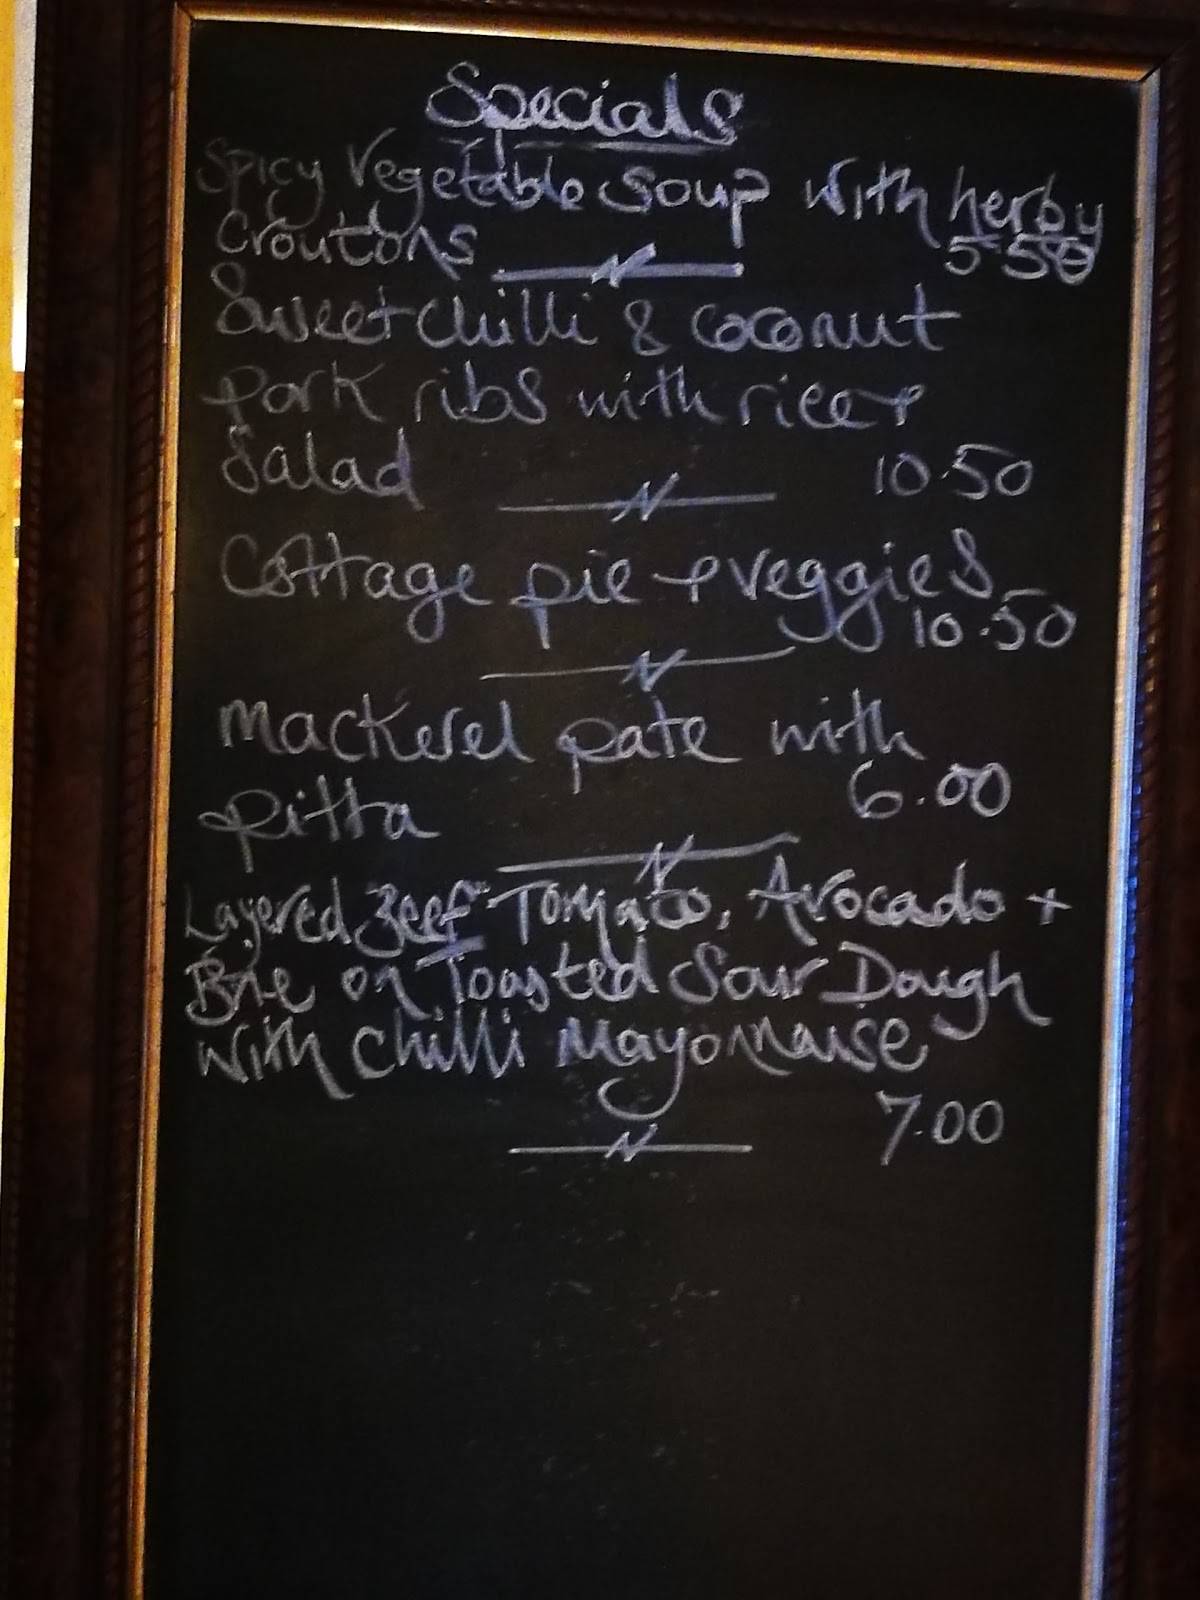 Specials
Spicy Vegetable Soup with herby
Croutons 5.50
Sweet chilli & coconut
pork ribs with rice +
Salad 10.50
Cottage pie + veggies
10.50
Mackerel pate with
pitta 6.00
Layered Beef Tomato, Avocado +
Brie on Toasted Sour Dough
with chilli Mayonnaise
7.00